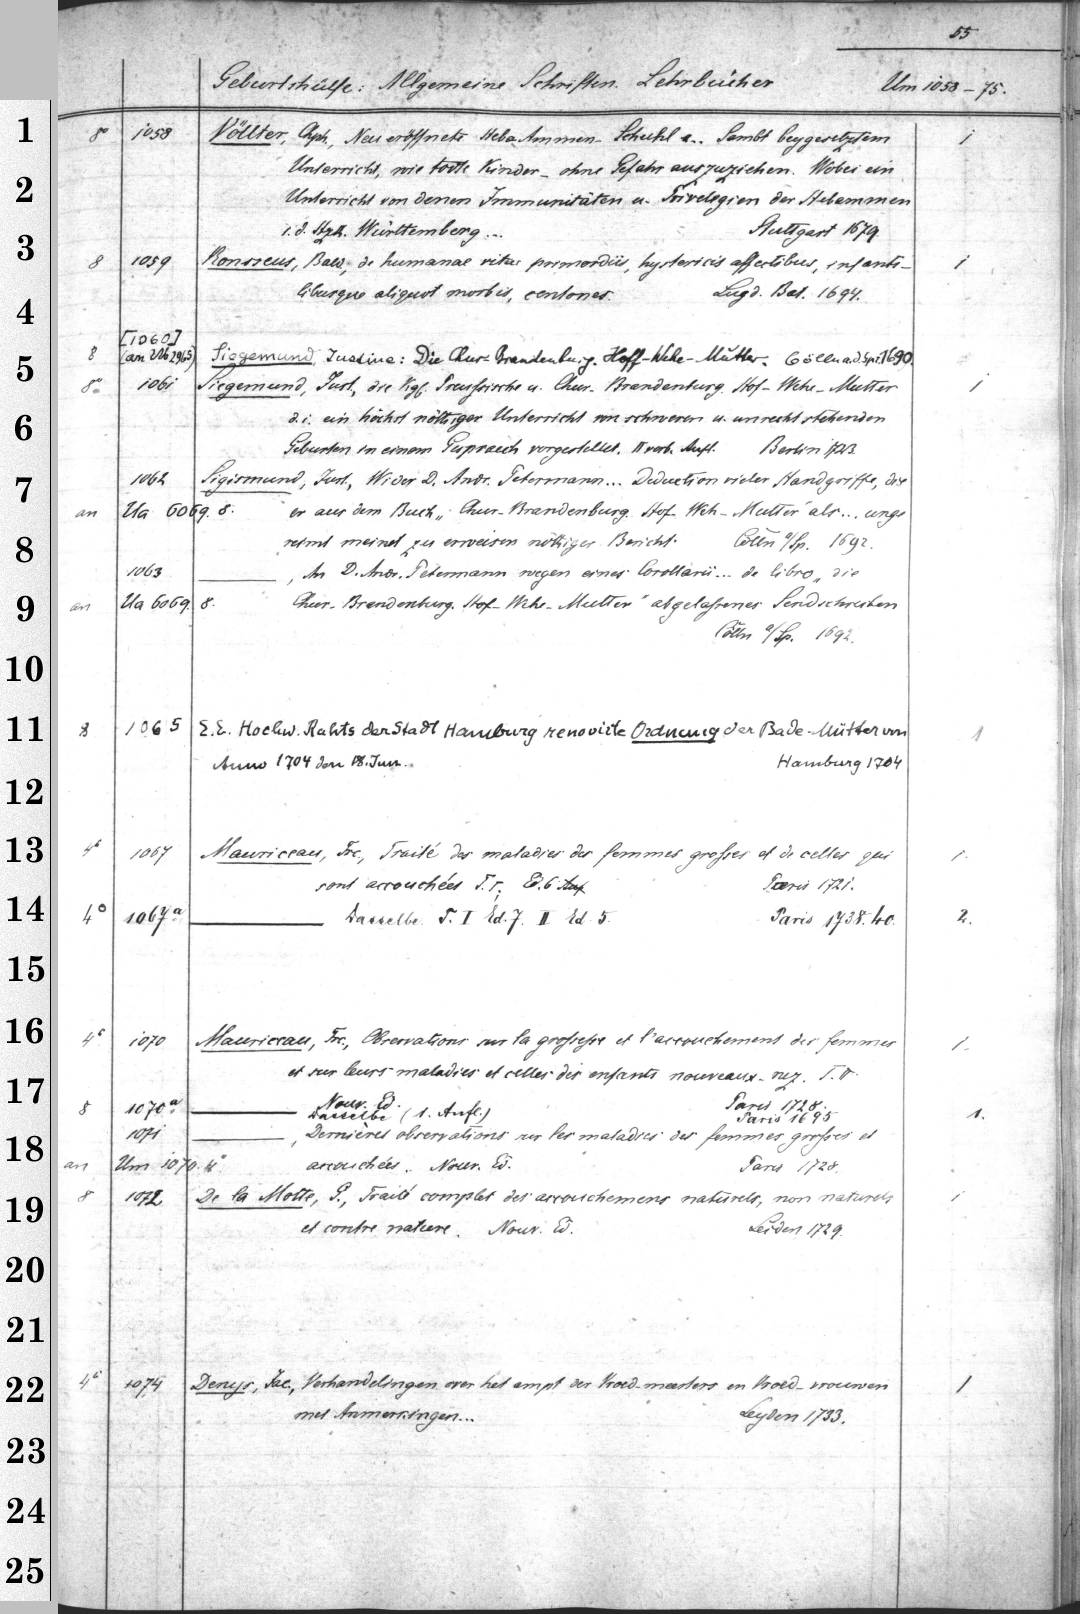 55
Geburtshülfe: Allgemeine Schriften. Lehrbücher Um 1058-75.
1
8° 1058 Völlter, Chph., Neu eröffnete Heb Ammen- Schuhl a.. Sambt beygesetztem 1
Unterricht, wie todte Kinder- ohne Gefahr auszuziehen. Wobei ein
2
Unterricht von denen Immunitäten u. Privilegien der Hebammen
i.d. Hzth. Württemberg... Stuttgart 1679
3
8 1059 Ronsseus, Bald., de humanae vitae primordiis, hystericis affectibus, infanti- 1
4
libusque aliquot morbis, centones. Lugd. Bat. 1694.
[1060]
5
8 Siegemund, Justina: Die Chur-Brandenburg. Hoff-Wehe-Mutter. Cölln a.d. Spr. 1690.
8° 1061 Siegemund, Just., die Kgl. Preussische u. Chur-Brandenburg. Hof-Wehe-Mutter 1
6
d.i. ein höchst nöthiger Unterricht von schweren u. unrecht stehenden
Geburten in einem Gespraech vorgestellet. II verb. Aufl. Berlin 1723
7
1062 Sigismund, Just., Wider D. Andr. Petermann... Deduction vieler Handgriffe, die
an Ua 6069. 8. er aus dem Buch „Chur-Brandenburg. Hof-Weh-Mutter" als... unge
8
reimt meinet zu erweisen nöthiger Bericht. Cölln a/Sp. 1692.
1063 ———, An D. Andr. Petermann wegen eines Corollarii... de libro „die
9
an Ua 6069. 8. Chur-Brandenburg. Hof-Wehe-Mutter" abgelassenes Sendschreiben
Cölln a/Sp. 1692.
10
11
8 1065 E.E. Hochw. Rahts der Stadt Hamburg renovirte Ordnung der Bade-Mütter von 1
Anno 1704 den 18. Jun.. Hamburg 1704
12
13
4° 1067 Mauriceau, Frc., Traité des maladies des femmes grosses et de celles qui 1.
sont accouchées T.I, Ed. 6 Paris 1721.
14
4° 1067a ——— Dasselbe. T. I Ed. 7. II Ed 5. Paris 1738. 40. 2.
15
16
4° 1070 Mauriceau, Frc., Observations sur la grossesse et l'accouchement des femmes 1.
et sur leurs maladies et celles des enfants nouveaux-nez. T. II
17
Nouv. Ed. Paris 1728.
8 1070a ——— Dasselbe (1. Aufl.) Paris 1695 1.
1071 ———, Dernières observations sur les maladies des femmes grosses et
18
an Um 1070. 4° accouchées. Nouv. Ed. Paris 1728.
19
8 1072 De la Motte, G., Traité complet des accouchemens naturels, non naturels 1
et contre nature. Nouv. Ed. Leiden 1729.
20
21
22
4° 1074 Denys, Jac., Verhandelingen over het ampt der Vroed-meesters en Vroed-vrouwen 1
met Anmerkingen... Leyden 1733.
23
24
25